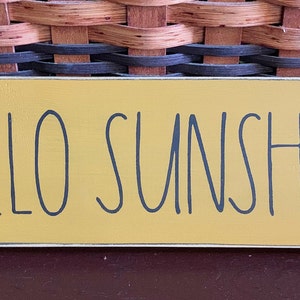 LLO SUNSH